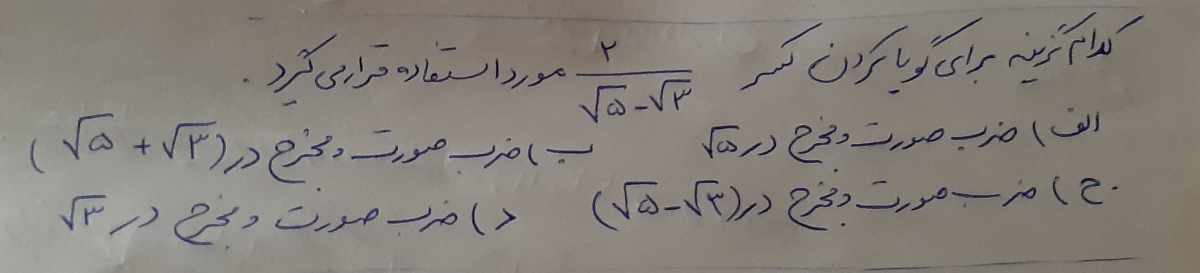 کدام گزینه برای گویا کردن کسر ۲/(√۵-√۳) مورد استفاده قرار می گیرد .
الف) ضرب صورت و مخرج در √۵ ب) ضرب صورت و مخرج در (√۵+√۳)
ج) ضرب صورت و مخرج در (√۵-√۳) د) ضرب صورت و مخرج در √۳